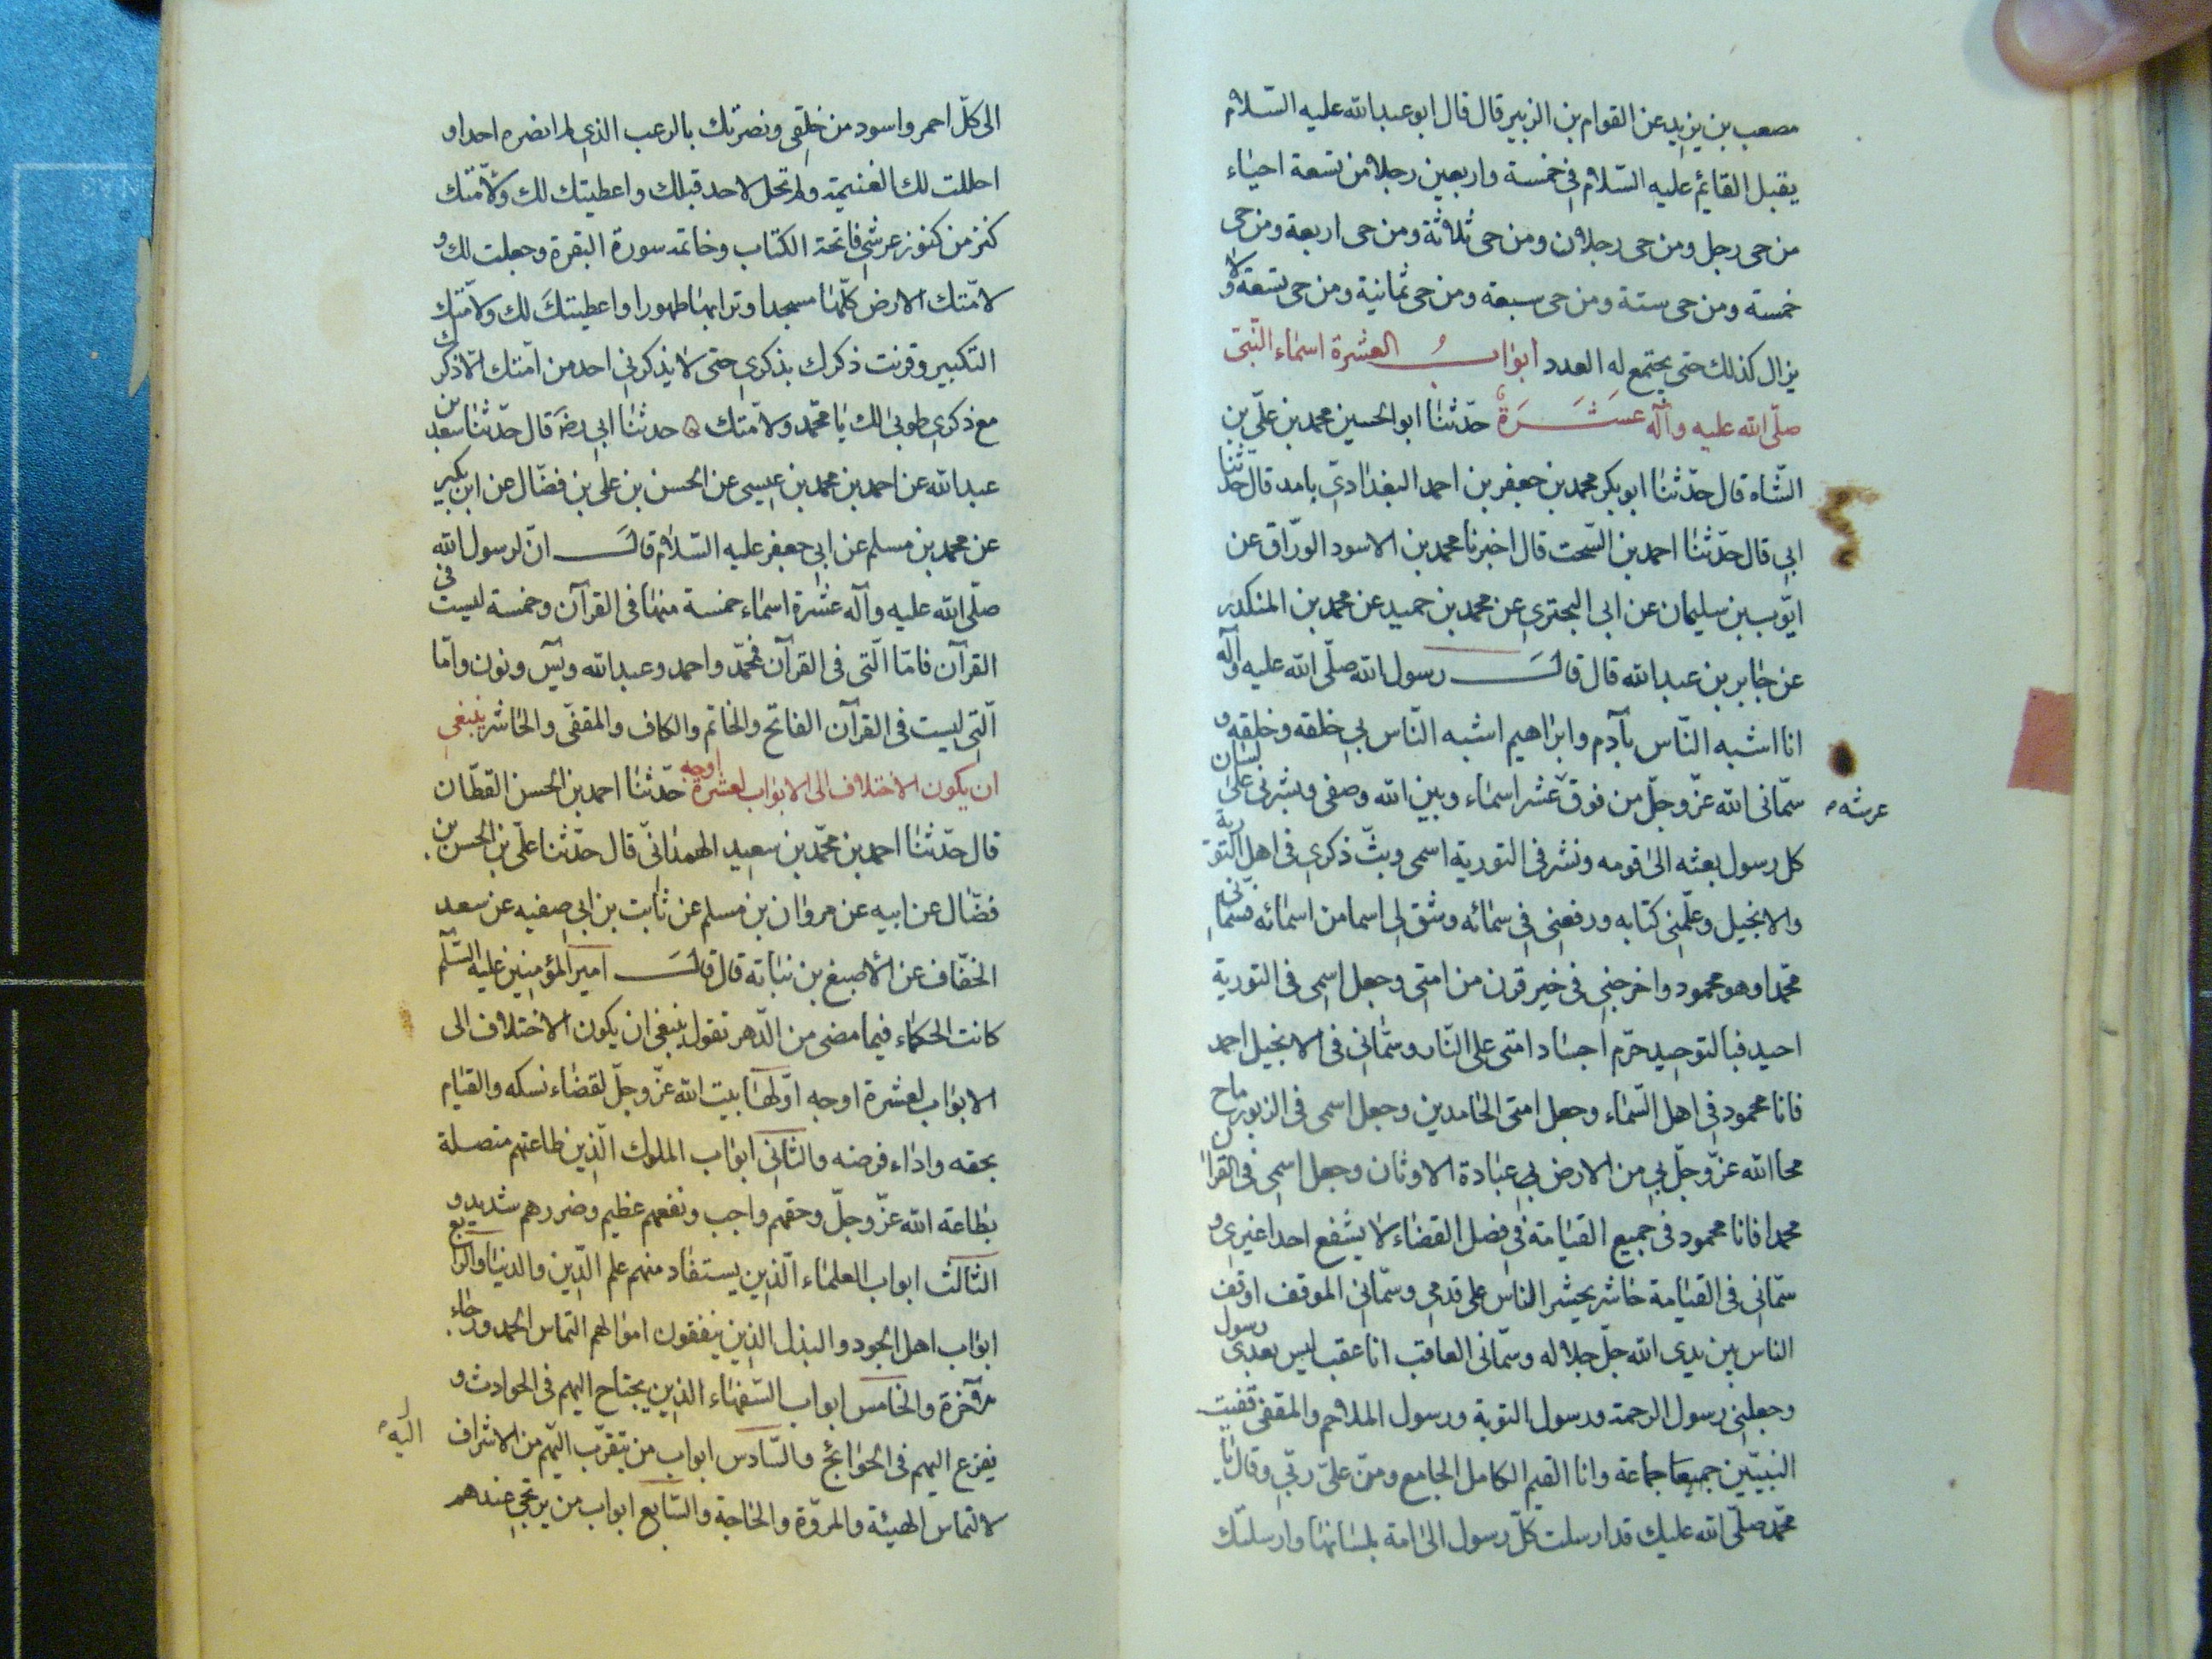 مصعب بن يزيد عن القوام بن الزبير قال قال ابو عبد الله عليه السّلام
يقبل القايم عليه السّلام فى خمسة واربعين رجلا من تسعة احياء
من حى رجل ومن حى رجلان ومن حى ثلاثة ومن حى اربعة ومن حى
خمسة ومن حى ستة ومن حى سبعة ومن حى ثمانية ومن حى تسعة ولا
يزال كذلك حتى يجتمع له العدد ابواب العشرة اسماء النّبىّ
صلّى الله عليه وآله عَشَرَة حدّثنا ابو الحسين محمد بن علىّ بن
الشّاه قال حدّثنا ابو بكر محمد بن جعفر بن احمد البغدادىّ بامد قال حدّثنا
ابى قال حدّثنا احمد بن السّحت قال اخبرنا محمد بن الاسود الورّاق عن
ايّوب بن سليمان عن ابى البخترى عن محمد بن حميد عن محمد بن المنكدر
عن جابر بن عبد الله قال قال رسول الله صلّى الله عليه وآله
انا اشبه النّاس بآدم وابراهيم اشبه النّاس بى خلقه وخلقه و
سمّانى الله عزّ وجلّ من فوق عشر اسماء وبين الله وصفى وبشرنى على لسان
عرشه
كل رسول بعثه الى قومه ونشر فى التورية اسمى وبثّ ذكرى فى اهل التورية
والانجيل وعلّمنى كتابه ورفعنى فى سمائه وشق لى اسما من اسمائه فسمّانى
محّمدا وهو محمود واخرجنى فى خير قرن من امتى وجعل اسمى فى التورية
احيد فبالتوحيد حرّم اجساد امتى على النّار وسمّانى فى الانجيل احمد
فانا محمود فى اهل السّماء وجعل امتى الحامدين وجعل اسمى فى الزبور ماح
محا الله عزّ وجلّ بى من الارض بى عبادة الاوثان وجعل اسمى فى القران
محمدا فانا محمود فى جميع القيامة فى فصل القضاء لا يشفع احد اغيرى و
سمّانى فى القيامة حاشر يحشر الناس على قدمى وسمّانى الموقف اوقف
الناس بين يدى الله جلّ جلاله وسمّانى العاقب انا عقب ليس بعدى رسول
وجعلنى رسول الرحمة ورسول التوبة ورسول الملاحم والمقفى قفيت
النبيّين جميعا جماعة وانا القيم الكامل الجامع ومنّ علىّ ربّى وقال يا
محّمد صلّى الله عليك قد ارسلت كلّ رسول الى امة بلسانها وارسلتك
الى كلّ احمر واسود من خلقى ونصرتك بالرعب الذى لم انصره احدا و
احللت لك الغنيمة ولم تحل لاحد قبلك واعطيتك لك ولامّتك
كنز من كنوز عرشى فاتحة الكتاب وخاتمة سورة البقرة وجعلت لك و
لامّتك الارض كلّها مسجدا وترابها طهورا واعطيتك لك ولامّتك
التكبير وقرنت ذكرك بذكرى حتى لا يذكرنى احد من امّتك الّا ذكرك
مع ذكرى طوبى لك يا محّمد ولامّتك حدثنا ابى رضه قال حدّثنا سعد بن
عبد الله عن احمد بن محمد بن عيسى عن الحسن بن على بن فضّال عن ابن بكير
عن محمد بن مسلم عن ابى جعفر عليه السّلام قال انّ لرسول الله
صلّى الله عليه وآله عشرة اسماء خمسة منها فى القرآن وخمسة ليست فى
القرآن فامّا الّتى فى القرآن فمحّمد واحمد وعبد الله ويس ونون وامّا
الّتى ليست فى القرآن الفاتح والخاتم والكاف والمقفّى والحاشر ينبغى
ان يكون الاختلاف الى الابواب لعشرة اوجه حدّثنا احمد بن الحسن القطّان
قال حدّثنا احمد بن محّمد بن سعيد الهمدانىّ قال حدّثنا علىّ بن الحسن بن
فضّال عن ابيه عن مروان بن مسلم عن ثابت بن ابى صفيه عن سعد
الخفّاف عن الاصبغ بن نباته قال قال امير المؤمنين عليه السّلم
كانت الحكماء فيما مضى من الدّهر تقول ينبغى ان يكون الاختلاف الى
الابواب لعشرة اوجه اوّلها بيت الله عزّ وجلّ لقضاء نسكه والقيام
بحقه واداء فرضه والثانى ابواب الملوك الّذين طاعتهم متصلة
بطاعة الله عزّ وجلّ وحقهم واجب ونفعهم عظيم وضررهم شديد و
الثالث ابواب العلماء الّذين يستفاد منهم علم الدّين والدنيا والرابع
ابواب اهل الجود والبذل الذين ينفقون اموالهم التماس الحمد ورجاء
الآخرة والخامس ابواب السّفهاء الذين يحتاج اليهم فى الحوادث و
يفزع اليهم فى الحوائج والسّادس ابواب من يتقرّب اليهم من الاشراف
اليه
لالتماس الهيئة والمروّة والحاجة والسّابع ابواب من يرتجى عندهم